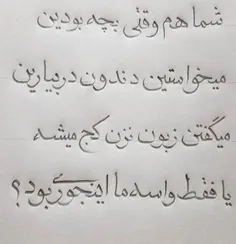 شما هم وقتی بچه بودین
میخواستین دندون دربیارین
میگفتن زبون نزن کج میشه
یا فقط واسه ما اینجوری بود؟